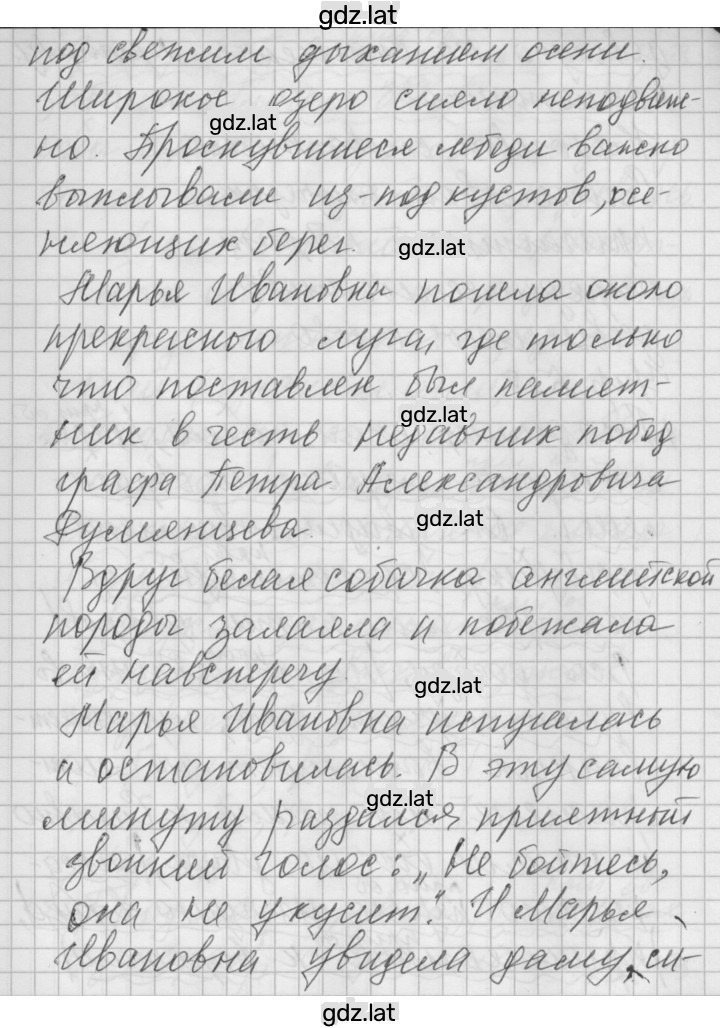 gdz.lat
под свежим дыханием осени.
Широкое озеро сияло неподвиж-
gdz.lat
но. Проснувшиеся лебеди важно
выплывали из-под кустов, осе-
няющих берег.
gdz.lat
Марья Ивановна пошла около
прекрасного луга, где только
что поставлен был памят-
gdz.lat
ник в честь недавних побед
графа Петра Александровича
Румянцева.
gdz.lat
Вдруг белая собачка английской
породы залаяла и побежала
ей навстречу.
gdz.lat
Марья Ивановна испугалась
и остановилась. В эту самую
gdz.lat
минуту раздался приятный
звонкий голос: „Не бойтесь,
она не укусит." И Марья
Ивановна увидела даму, си-
gdz.lat